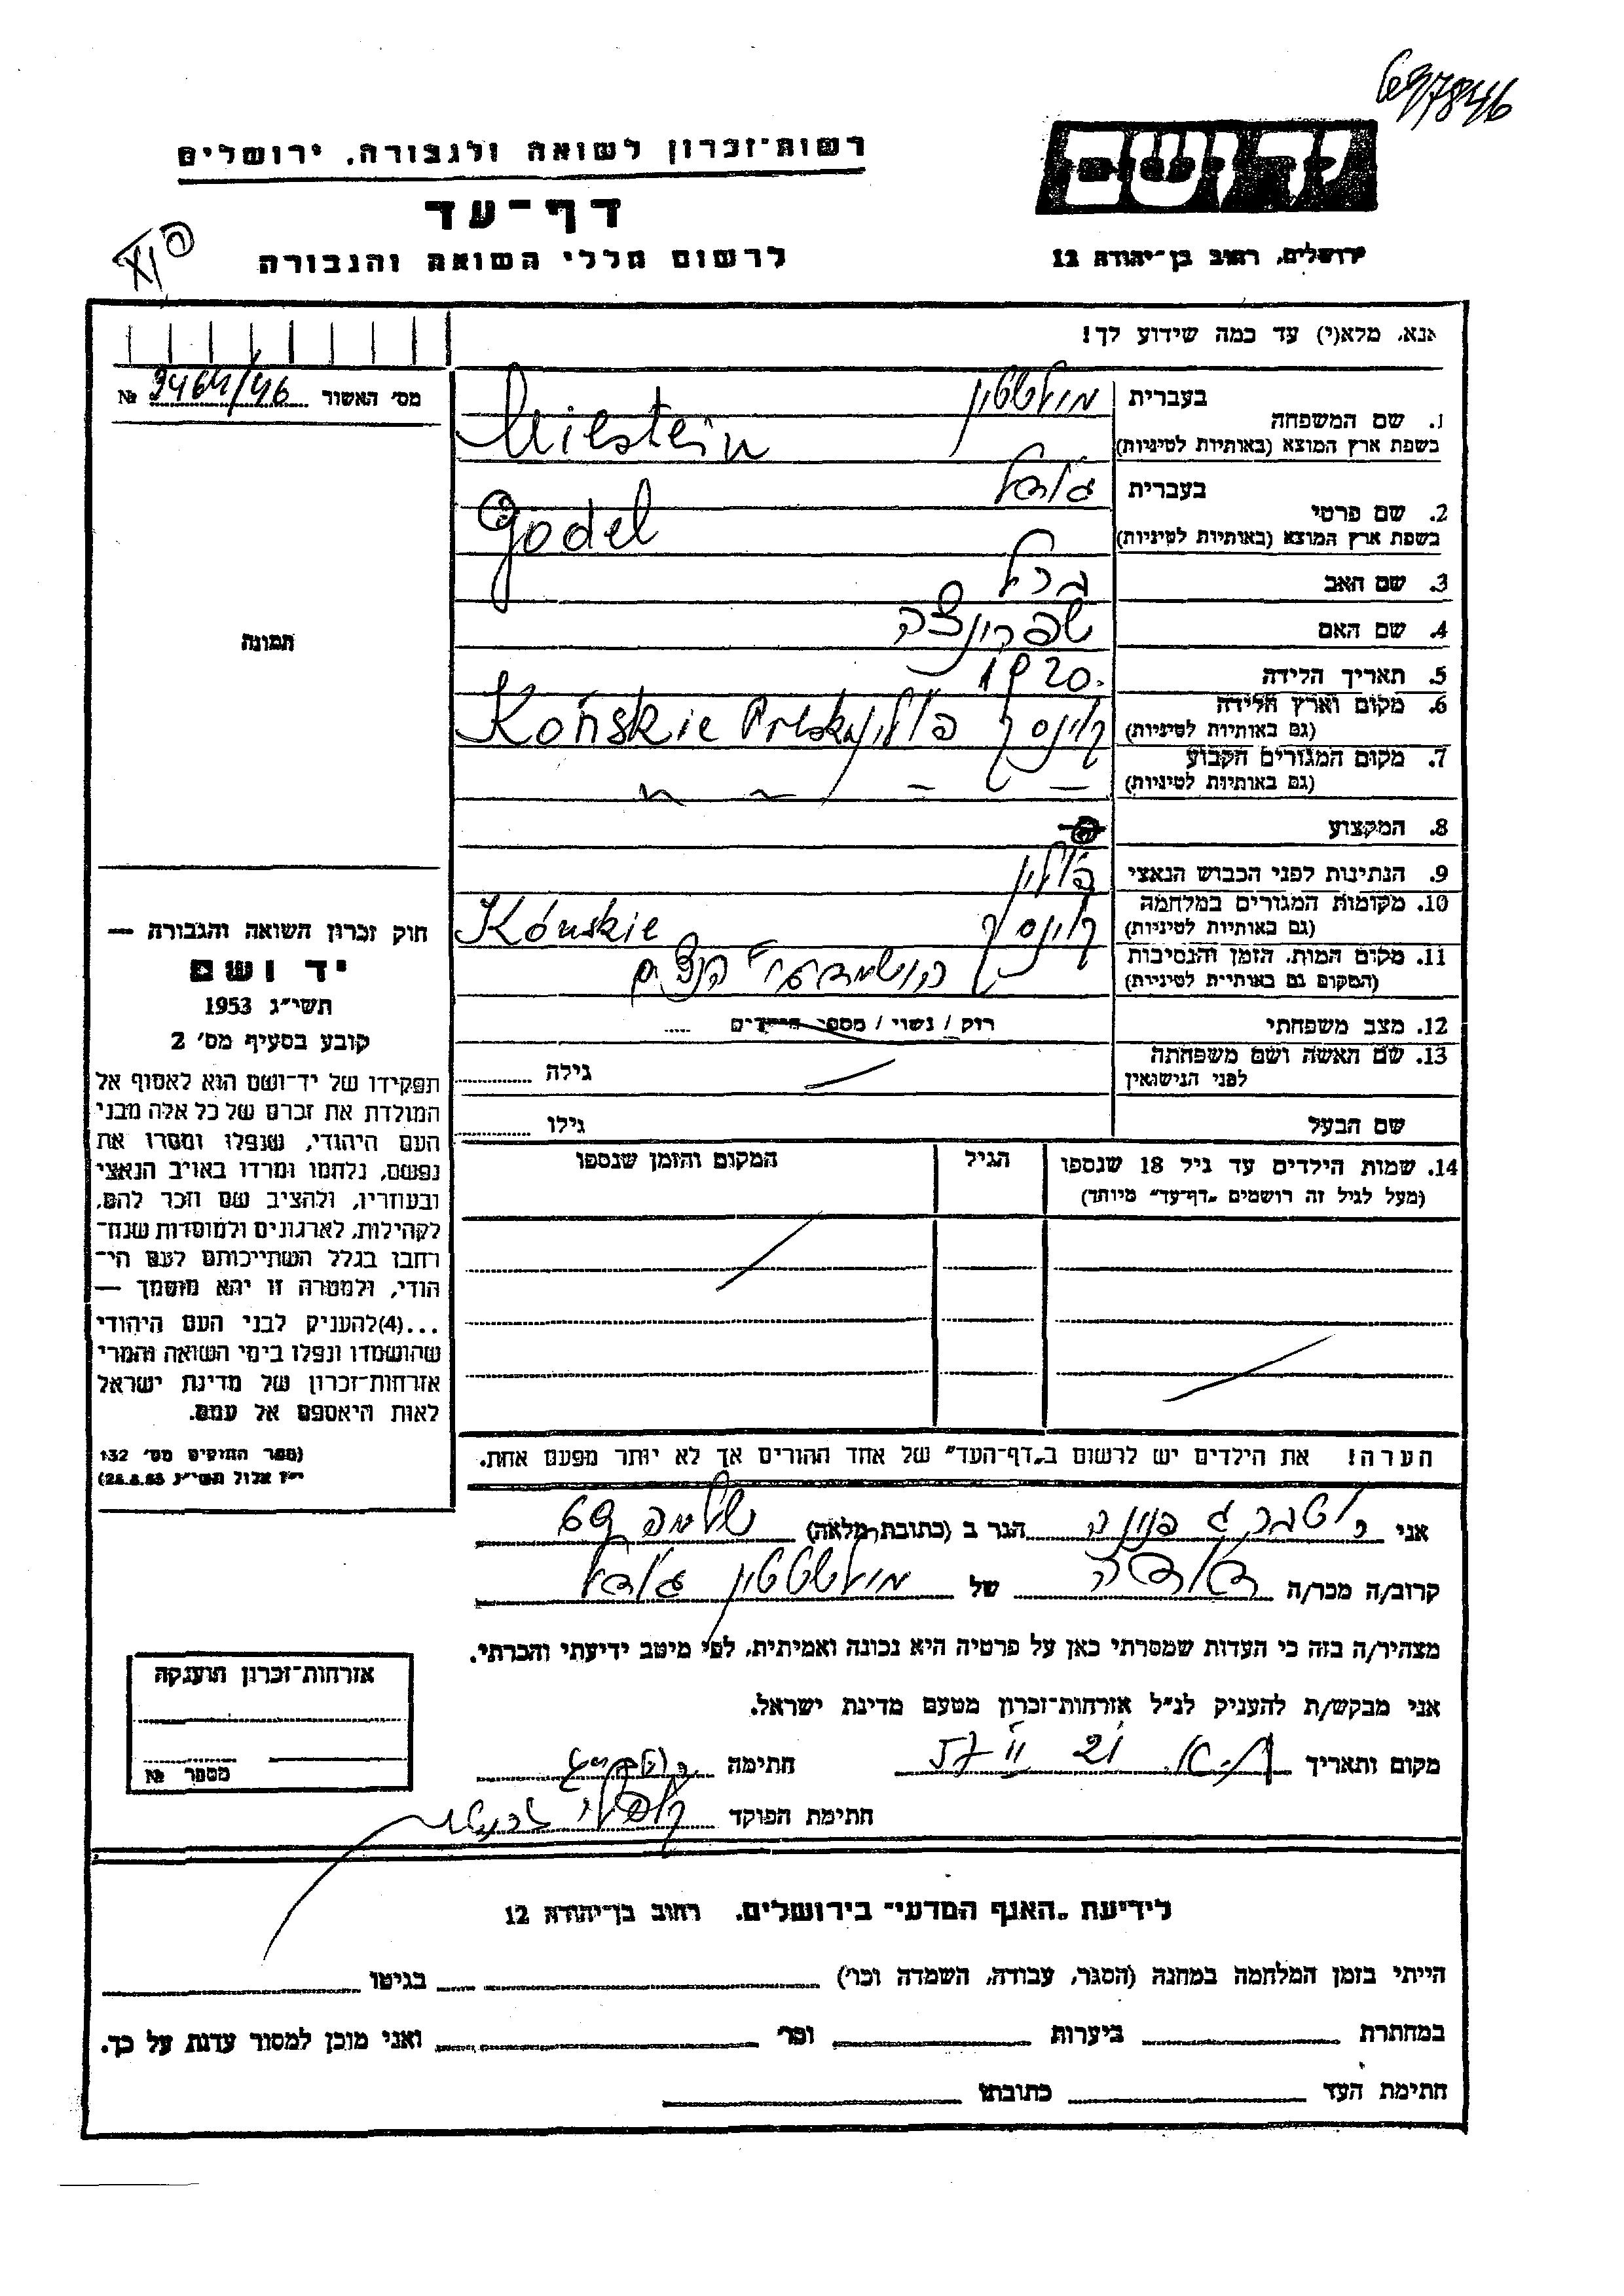 697846
יד ושם
רשות־זכרון לשואה ולגבורה, ירושלים
דף־עד
לרשום חללי השואה והגבורה
ירושלים, רחוב בן־יהודה 12
אנא, מלא(י) עד כמה שידוע לך!
מס' האשור 9464/46 №
1. שם המשפחה בעברית מילשטיין
בשפת ארץ המוצא (באותיות לטיניות) Milstein
2. שם פרטי בעברית גודל
בשפת ארץ המוצא (באותיות לטיניות) Godel
3. שם האב
4. שם האם שפרינצה
5. תאריך הלידה 1920.
6. מקום וארץ הלידה (גם באותיות לטיניות) קוינסק פולין Końskie Polska
7. מקום המגורים הקבוע (גם באותיות לטיניות) — — — ~ ~
8. המקצוע
9. הנתינות לפני הכבוש הנאצי פולין
10. מקומות המגורים במלחמה (גם באותיות לטיניות) קוינסק Kónskie
11. מקום המות, הזמן והנסיבות (המקום גם באותיות לטיניות) הושמד ע"י הנצים
12. מצב משפחתי רוק / נשוי / מספר הילדים
13. שם האשה ושם משפחתה לפני הנישואין גילה
שם הבעל גילו
14. שמות הילדים עד גיל 18 שנספו הגיל המקום והזמן שנספו
(מעל לגיל זה רושמים „דף־עד" מיוחד)
הערה! את הילדים יש לרשום ב„דף־העד" של אחד ההורים אך לא יותר מפעם אחת.
תמונה
חוק זכרון השואה והגבורה —
יד ושם
תשי"ג 1953
קובע בסעיף מס' 2
תפקידו של יד־ושם הוא לאסוף אל
המולדת את זכרם של כל אלה מבני
העם היהודי, שנפלו ומסרו את
נפשם, נלחמו ומרדו באויב הנאצי
ובעוזריו, ולהציב שם וזכר להם,
לקהילות, לארגונים ולמוסדות שנח־
רבו בגלל השתייכותם לעם הי־
הודי, ולמטרה זו יהא מוסמך —
...(4)להעניק לבני העם היהודי
שהושמדו ונפלו בימי השואה והמרי
אזרחות־זכרון של מדינת ישראל
לאות היאספם אל עמם.
(ספר החוקים מס' 132
י"ז אלול תשי"ג 28.8.53)
אני פנינה הגר ב (כתובת מלאה) שלמה 69
קרוב/ה מכר/ה דודה של מילשטיין גודל
מצהיר/ה בזה כי העדות שמסרתי כאן על פרטיה היא נכונה ואמיתית, לפי מיטב ידיעתי והכרתי.
אני מבקש/ת להעניק לנ"ל אזרחות־זכרון מטעם מדינת ישראל.
מקום ותאריך ת"א. 57 חתימה
חתימת הפוקד
אזרחות־זכרון הוענקה
מספר №
לידיעת „האגף המדעי" בירושלים, רחוב בן־יהודה 12
הייתי בזמן המלחמה במחנה (הסגר, עבודה, השמדה וכו') בגיטו
במחתרת ביערות וכו' ואני מוכן למסור עדות על כך.
חתימת העד כתובתו